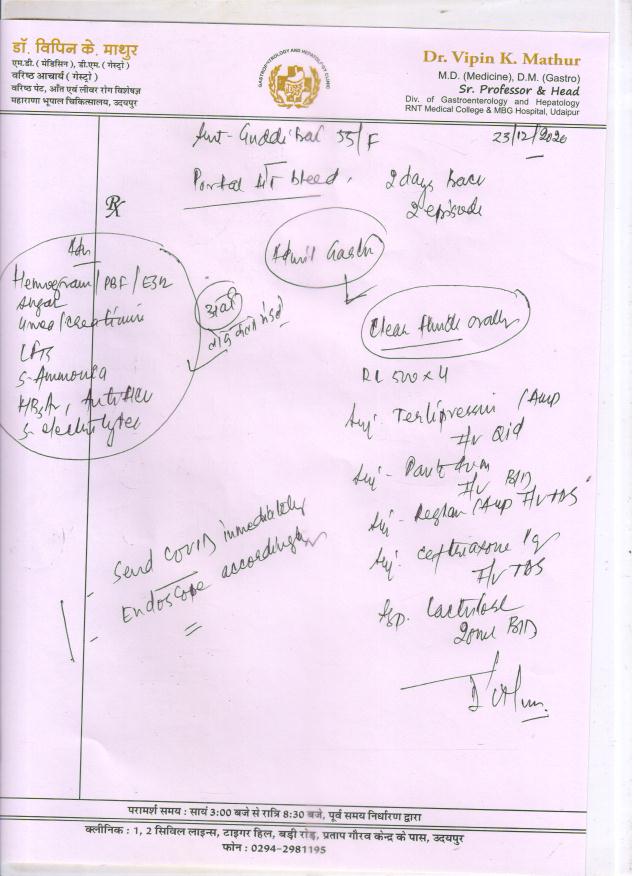 डॉ. विपिन के. माथुर
एम.डी. ( मेडिसिन ), डी.एम. ( गेस्ट्रो )
वरिष्ठ आचार्य ( गेस्ट्रो )
वरिष्ठ पेट, आँत एवं लीवर रोग विशेषज्ञ
महाराणा भूपाल चिकित्सालय, उदयपुर
GASTROENTROLOGY AND HEPATOLOGY CLINIC
Dr. Vipin K. Mathur
M.D. (Medicine), D.M. (Gastro)
Sr. Professor & Head
Div. of Gastroenterology and Hepatology
RNT Medical College & MBG Hospital, Udaipur
55/F
23/12/2020
Portal HT bleed, 2 days back
2 episode
Rx
Admit Gastro
Adv
Hemogram / PBF / ESR
Sugar
Urea / creatinine
LFTs
S. Ammonia
HBsAg, Anti HCV
S. electrolytes
Clear fluids orally
RL 500 x 4
Inj. Terlipressin 1 Amp
I/v Qid
Inj. Pant 40m
I/v BID
Inj. Reglan 1 Amp I/v TDS
Inj. Ceftriaxone 1g
I/v TDS
Syp. Lactulose
20ml BID
Send COVID immediately
Endoscope accordingly
परामर्श समय : सायं 3:00 बजे से रात्रि 8:30 बजे, पूर्व समय निर्धारण द्वारा
क्लीनिक : 1, 2 सिविल लाइन्स, टाइगर हिल, बड़ी रोड़, प्रताप गौरव केन्द्र के पास, उदयपुर
फोन : 0294-2981195